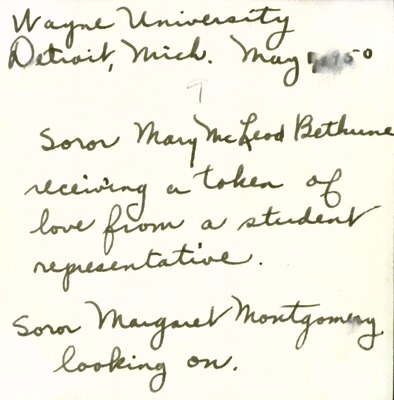 Wayne University
Detroit, Mich. May 1950
Soror Mary McLeod Bethune
receiving a token of
love from a student
representative.
Soror Margaret Montgomery
looking on.